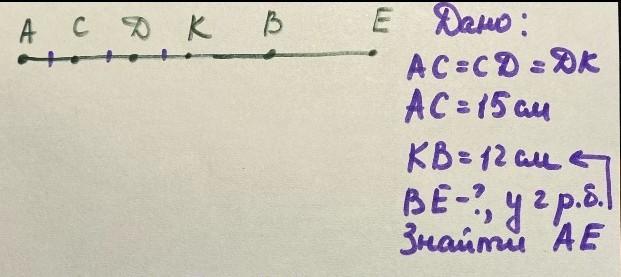 A C D K B E
Дано:
AC=CD=DK
AC=15 см
KB=12 см
BE-?, у 2 р.б.
Знайти AE